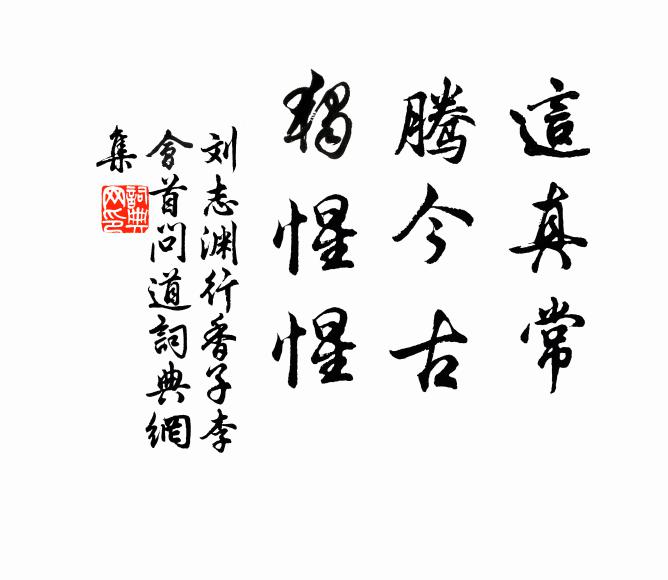 這真常
騰今古
獨惺惺
刘志渊行香子李
會首问道詞典網
集
詞典
网印